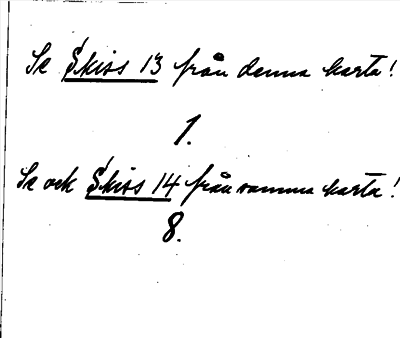 Se Skiss 13 från denna karta!
1.
Se ock Skiss 14 från samma karta!
8.